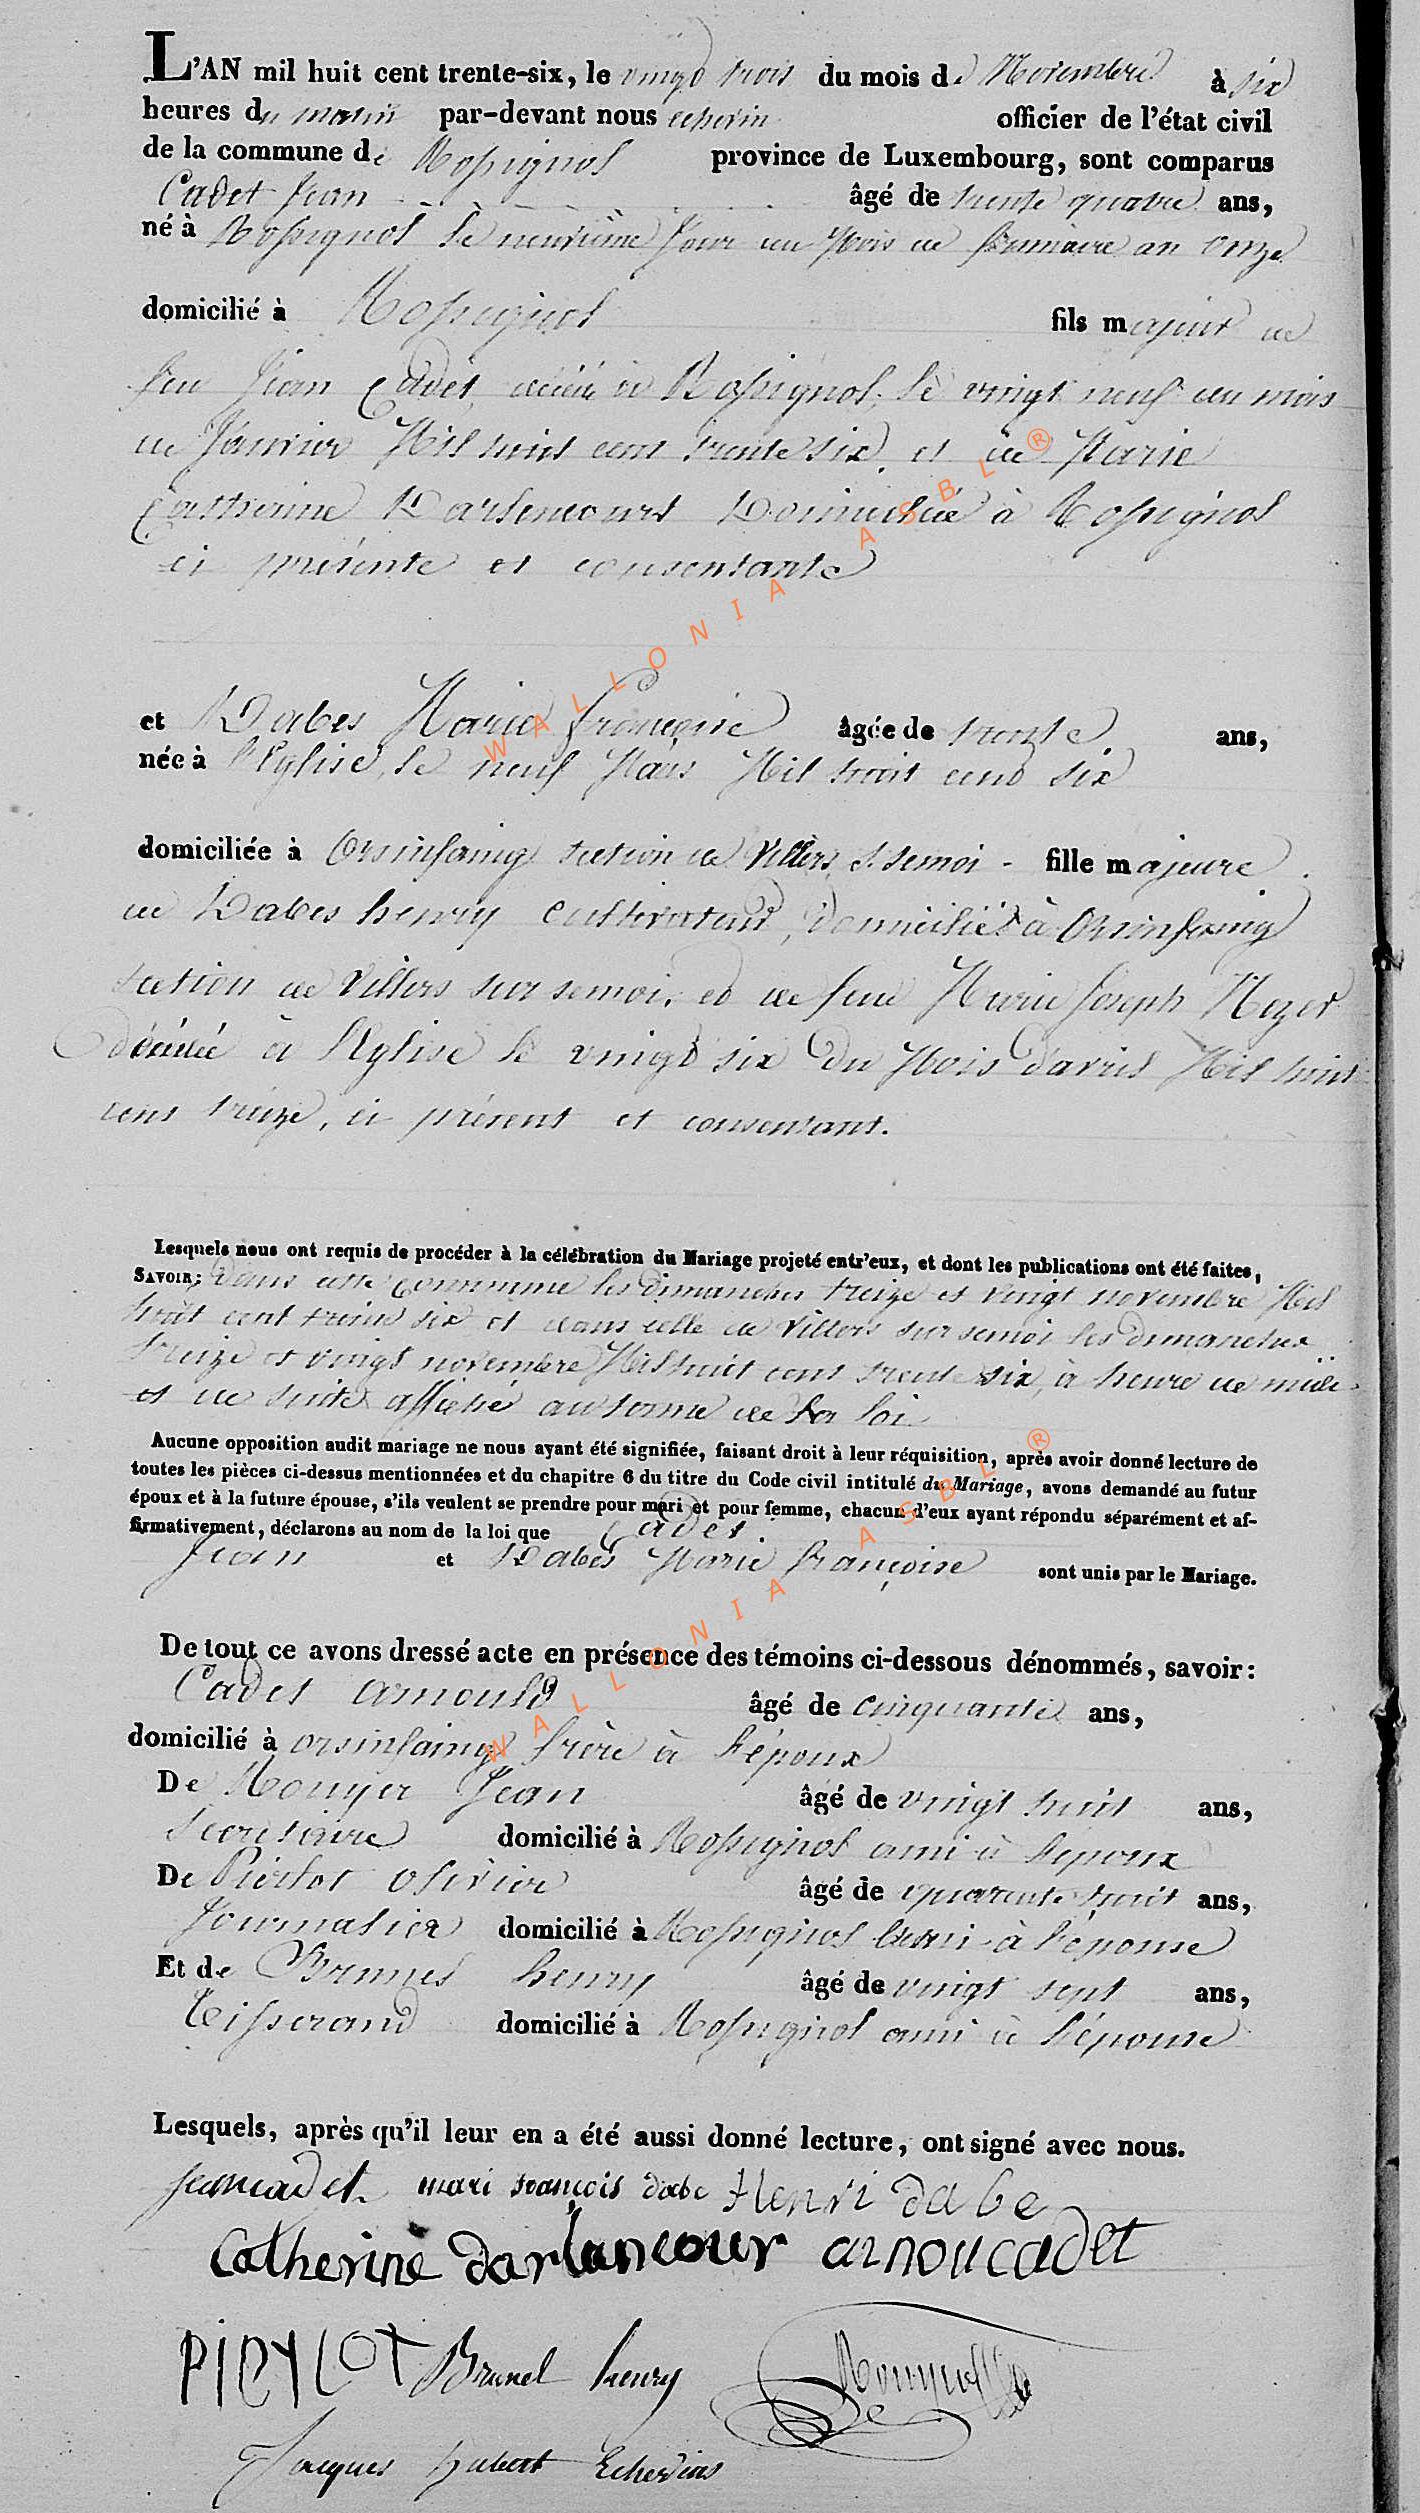 L'AN mil huit cent trente-six, le vingt trois du mois de Novembre à six
heures du matin par-devant nous echevin officier de l'état civil
de la commune de Rossignol province de Luxembourg, sont comparus
Cadet Jean âgé de trente quatre ans,
né à Rossignol le neuvième Jour du Mois de frimaire an onze
domicilié à Rossignol fils majeur de
feu Jean Cadet, décédé à Rossignol, le vingt neuf du mois
de Janvier Mil huit cent trente six, et de Marie
Catherine Darlencourt Domiciliée à Rossignol
ci présente et consentante
et Dabes Marie françoise âgée de trente ans,
née à l'Eglise, le neuf Mars Mil huit cent six
domiciliée à Orsinfaing section de Villers s. semoi - fille majeure
de Dabes henry Cultivateur, domicilié à Orsinfaing
section de Villers sur semoi, et de feue Marie Joseph Mezet
décédée à l'Eglise le vingt six du Mois d'avril Mil huit
cent treize, ci présent et consentant.
Lesquels nous ont requis de procéder à la célébration du Mariage projeté entr'eux, et dont les publications ont été faites,
SAVOIR; Dans cette Commune les dimanches treize et vingt novembre Mil
huit cent trente six et dans celle de Villers sur semoi les dimanches
treize et vingt novembre Mil huit cent trente six, à heure de midi
et de suite affiché au terme de la loi
Aucune opposition audit mariage ne nous ayant été signifiée, faisant droit à leur réquisition, après avoir donné lecture de
toutes les pièces ci-dessus mentionnées et du chapitre 6 du titre du Code civil intitulé du Mariage, avons demandé au futur
époux et à la future épouse, s'ils veulent se prendre pour mari et pour femme, chacun d'eux ayant répondu séparément et af-
firmativement, déclarons au nom de la loi que Cadet
Jean et Dabes Marie françoise sont unis par le Mariage.
De tout ce avons dressé acte en présence des témoins ci-dessous dénommés, savoir:
Cadet arnould âgé de cinquante ans,
domicilié à orsinfaing frère à l'époux
De Rouyer Jean âgé de vingt huit ans,
Secretaire domicilié à Rossignol ami à l'époux
De Pierlot olivier âgé de quarante huit ans,
Journalier domicilié à Rossignol ami à l'épouse
Et de Brunel henry âgé de vingt sept ans,
Tisserand domicilié à Rossignol ami à l'épouse
Lesquels, après qu'il leur en a été aussi donné lecture, ont signé avec nous.
jean cadet mari françois dabe Henri dabe
Catherine darlancour arnou cadet
PIEYLOT Brunel henry
Jacques hubert Echevins
WALLONIA ASBL ®
WALLONIA ASBL ®